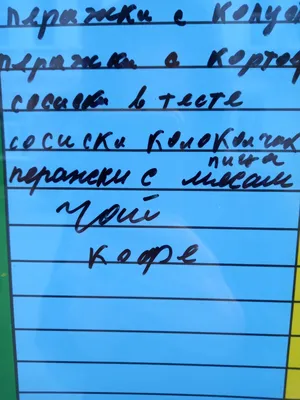 перажки с капус
перажки с картоф
сосиски в тесте
сосиски колокольчик
пица
перажски с мясам
Чай
кофе